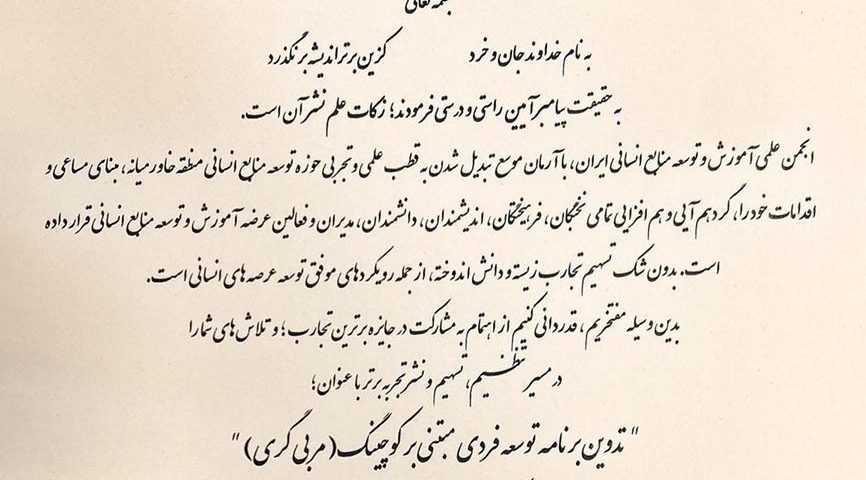 بسمه تعالی
به نام خداوند جان و خرد کزین برتر اندیشه برنگذرد
به حقیقت پیامبر آیین راستی و درستی فرمودند؛ زکات علم نشر آن است.
انجمن علمی آموزش و توسعه منابع انسانی ایران، با آرمان موسع تبدیل شدن به قطب علمی و تجربی حوزه توسعه منابع انسانی منطقه خاورمیانه، مبنای مساعی و
اقدامات خود را، گردهم آیی و هم افزایی تمامی نخبگان، فرهیختگان، اندیشمندان، دانشمندان، مدیران و فعالین عرصه آموزش و توسعه منابع انسانی قرار داده
است. بدون شک تسهیم تجارب زیسته و دانش اندوخته، از جمله رویکردهای موفق توسعه عرصه های انسانی است.
بدین وسیله مفتخریم، قدردانی کنیم از اهتمام به مشارکت در جایزه برترین تجارب؛ و تلاش های شما را
در مسیر تنظیم، تسهیم و نشر تجربه برتر با عنوان؛
" تدوین برنامه توسعه فردی مبتنی بر کوچینگ (مربی گری) "